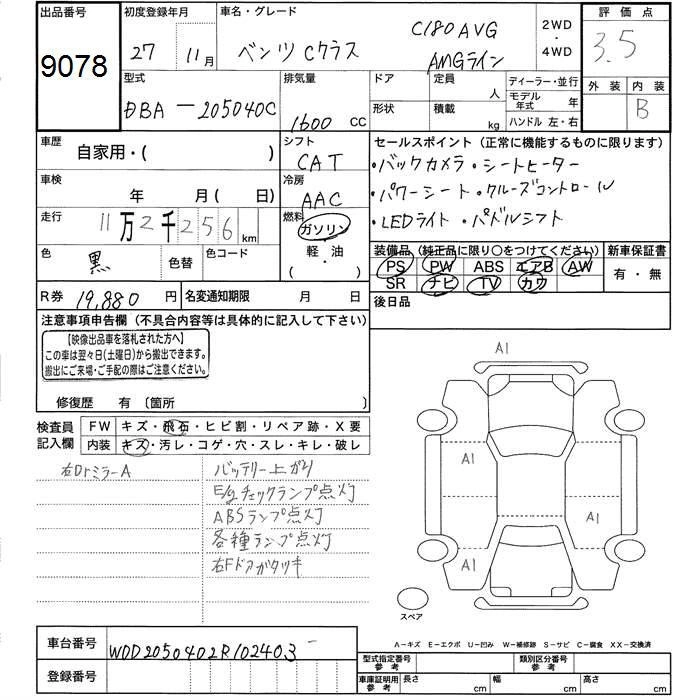 出品番号
9078
初度登録年月
27 11月
車名・グレード
ベンツ Cクラス
C180 AVG
AMGライン
2WD
・
4WD
評価点
3.5
外装 内装
B
型式
DBA-205040C
排気量
1600 CC
ドア
形状
定員
人
積載
kg
ディーラー・並行
モデル年式 年
ハンドル 左・右
車歴
自家用・( )
シフト
CAT
車検
年 月( 日)
冷房
AAC
走行
11万2千256km
燃料
ガソリン
・
軽・油
( )
色
黒
色替
色コード
R券 19,880 円
名変通知期限 月 日
セールスポイント (正常に機能するものに限ります)
・バックカメラ・シートヒーター
・パワーシート・クルーズコントロール
・LEDライト・パドルシフト
装備品 (純正品に限り○をつけてください)
PS PW ABS エアB AW
SR ナビ TV カワ
新車保証書
有・無
後日品
注意事項申告欄 (不具合内容等は具体的に記入して下さい)
【映像出品車を落札された方へ】
この車は翌々日(土曜日)から搬出できます。
搬出にご来場・ご手配の際はご注意ください。
修復歴 有 〔箇所 〕
検査員記入欄
FW キズ・飛石・ヒビ割・リペア跡・X要
内装 キズ・汚レ・コゲ・穴・スレ・キレ・破レ
右DrミラーA
バッテリー上がり
E/gチェックランプ点灯
ABSランプ点灯
各種ランプ点灯
右Fドアガタツキ
A1
A1
A1
A1
スペア
A-キズ E-エクボ U-凹み W-補修跡 S-サビ C-腐食 XX-交換済
車台番号
WDD2050402R102403
登録番号
型式指定番号 参考
類別区分番号 参考
車庫証明用 参考
長さ cm 幅 cm 高さ cm